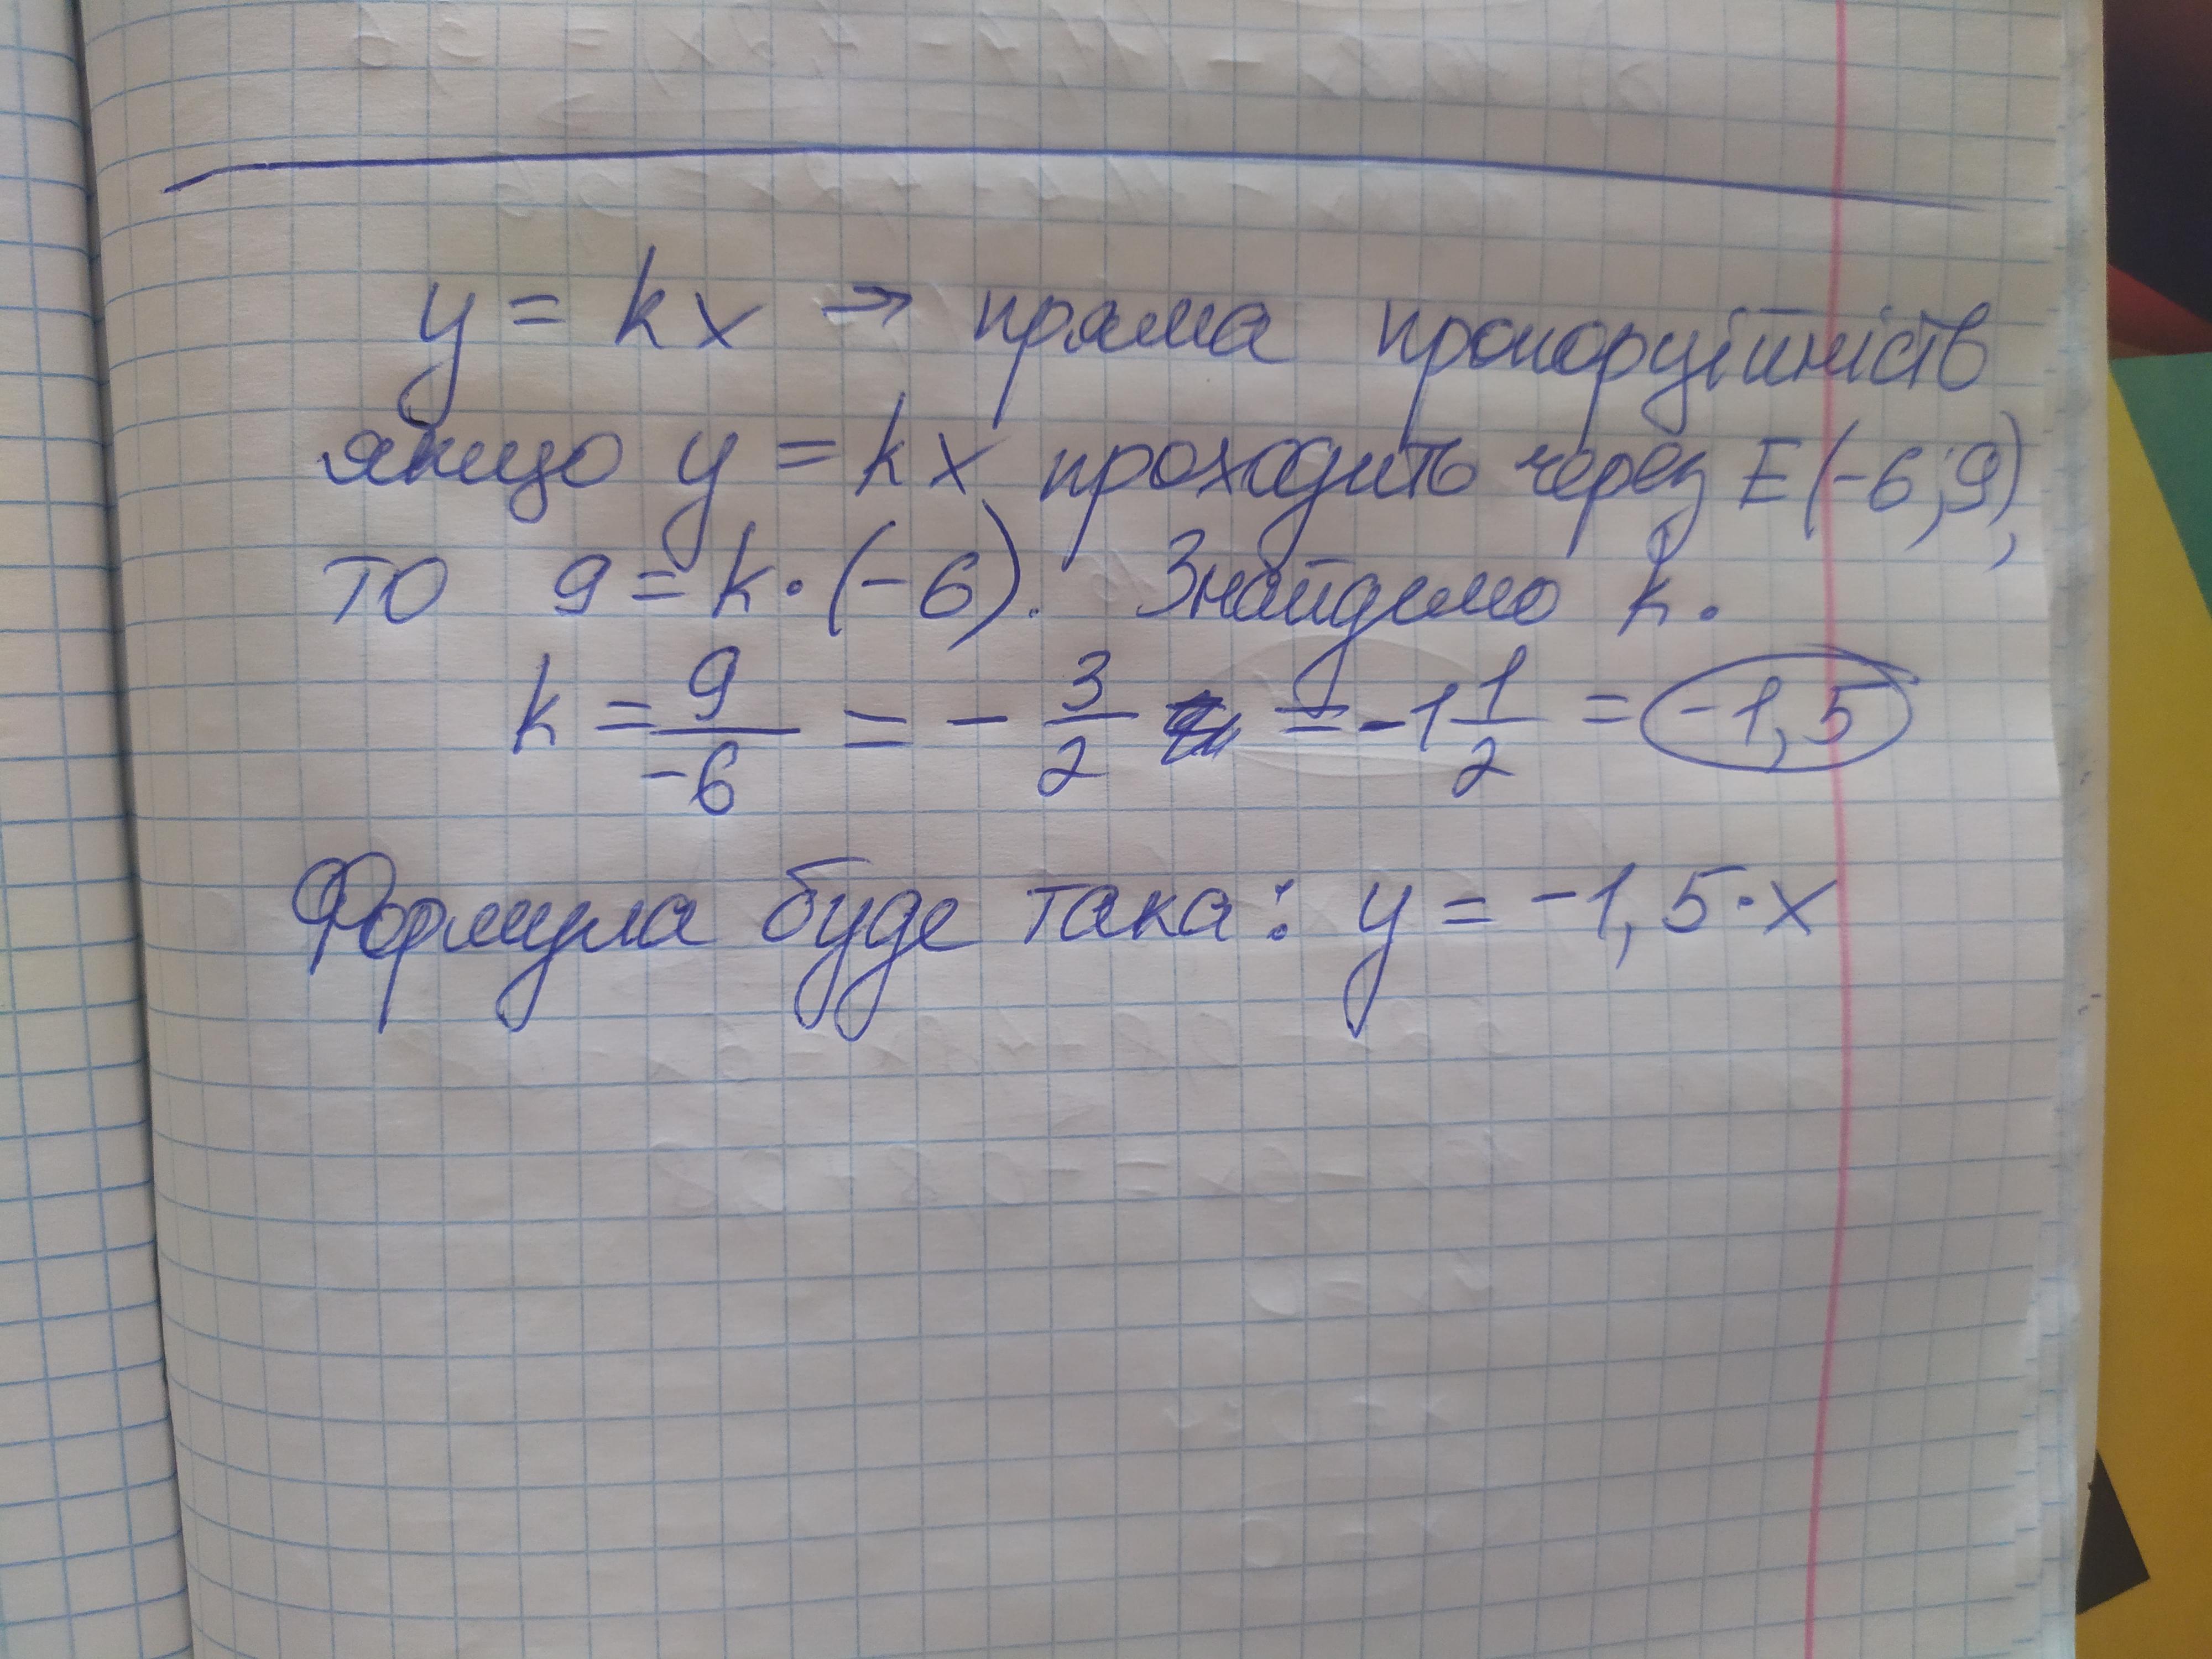 y = kx → пряма пропорційність
якщо y = kx проходить через E(-6;9),
то 9 = k·(-6). Знайдемо k.
k = 9/-6 = - 3/2 = -1 1/2 = -1,5
Формула буде така: y = -1,5·x